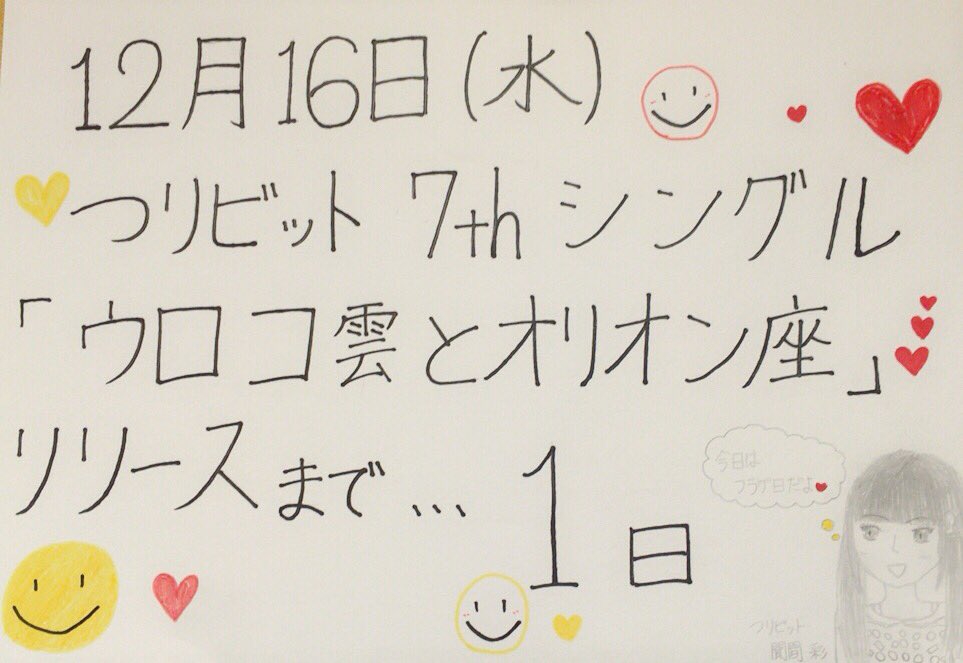 12月16日(水)
つりビット 7th シングル
「ウロコ雲とオリオン座」
リリースまで… 1日
今日は
フラゲ日だよ
つりビット
聞間 彩